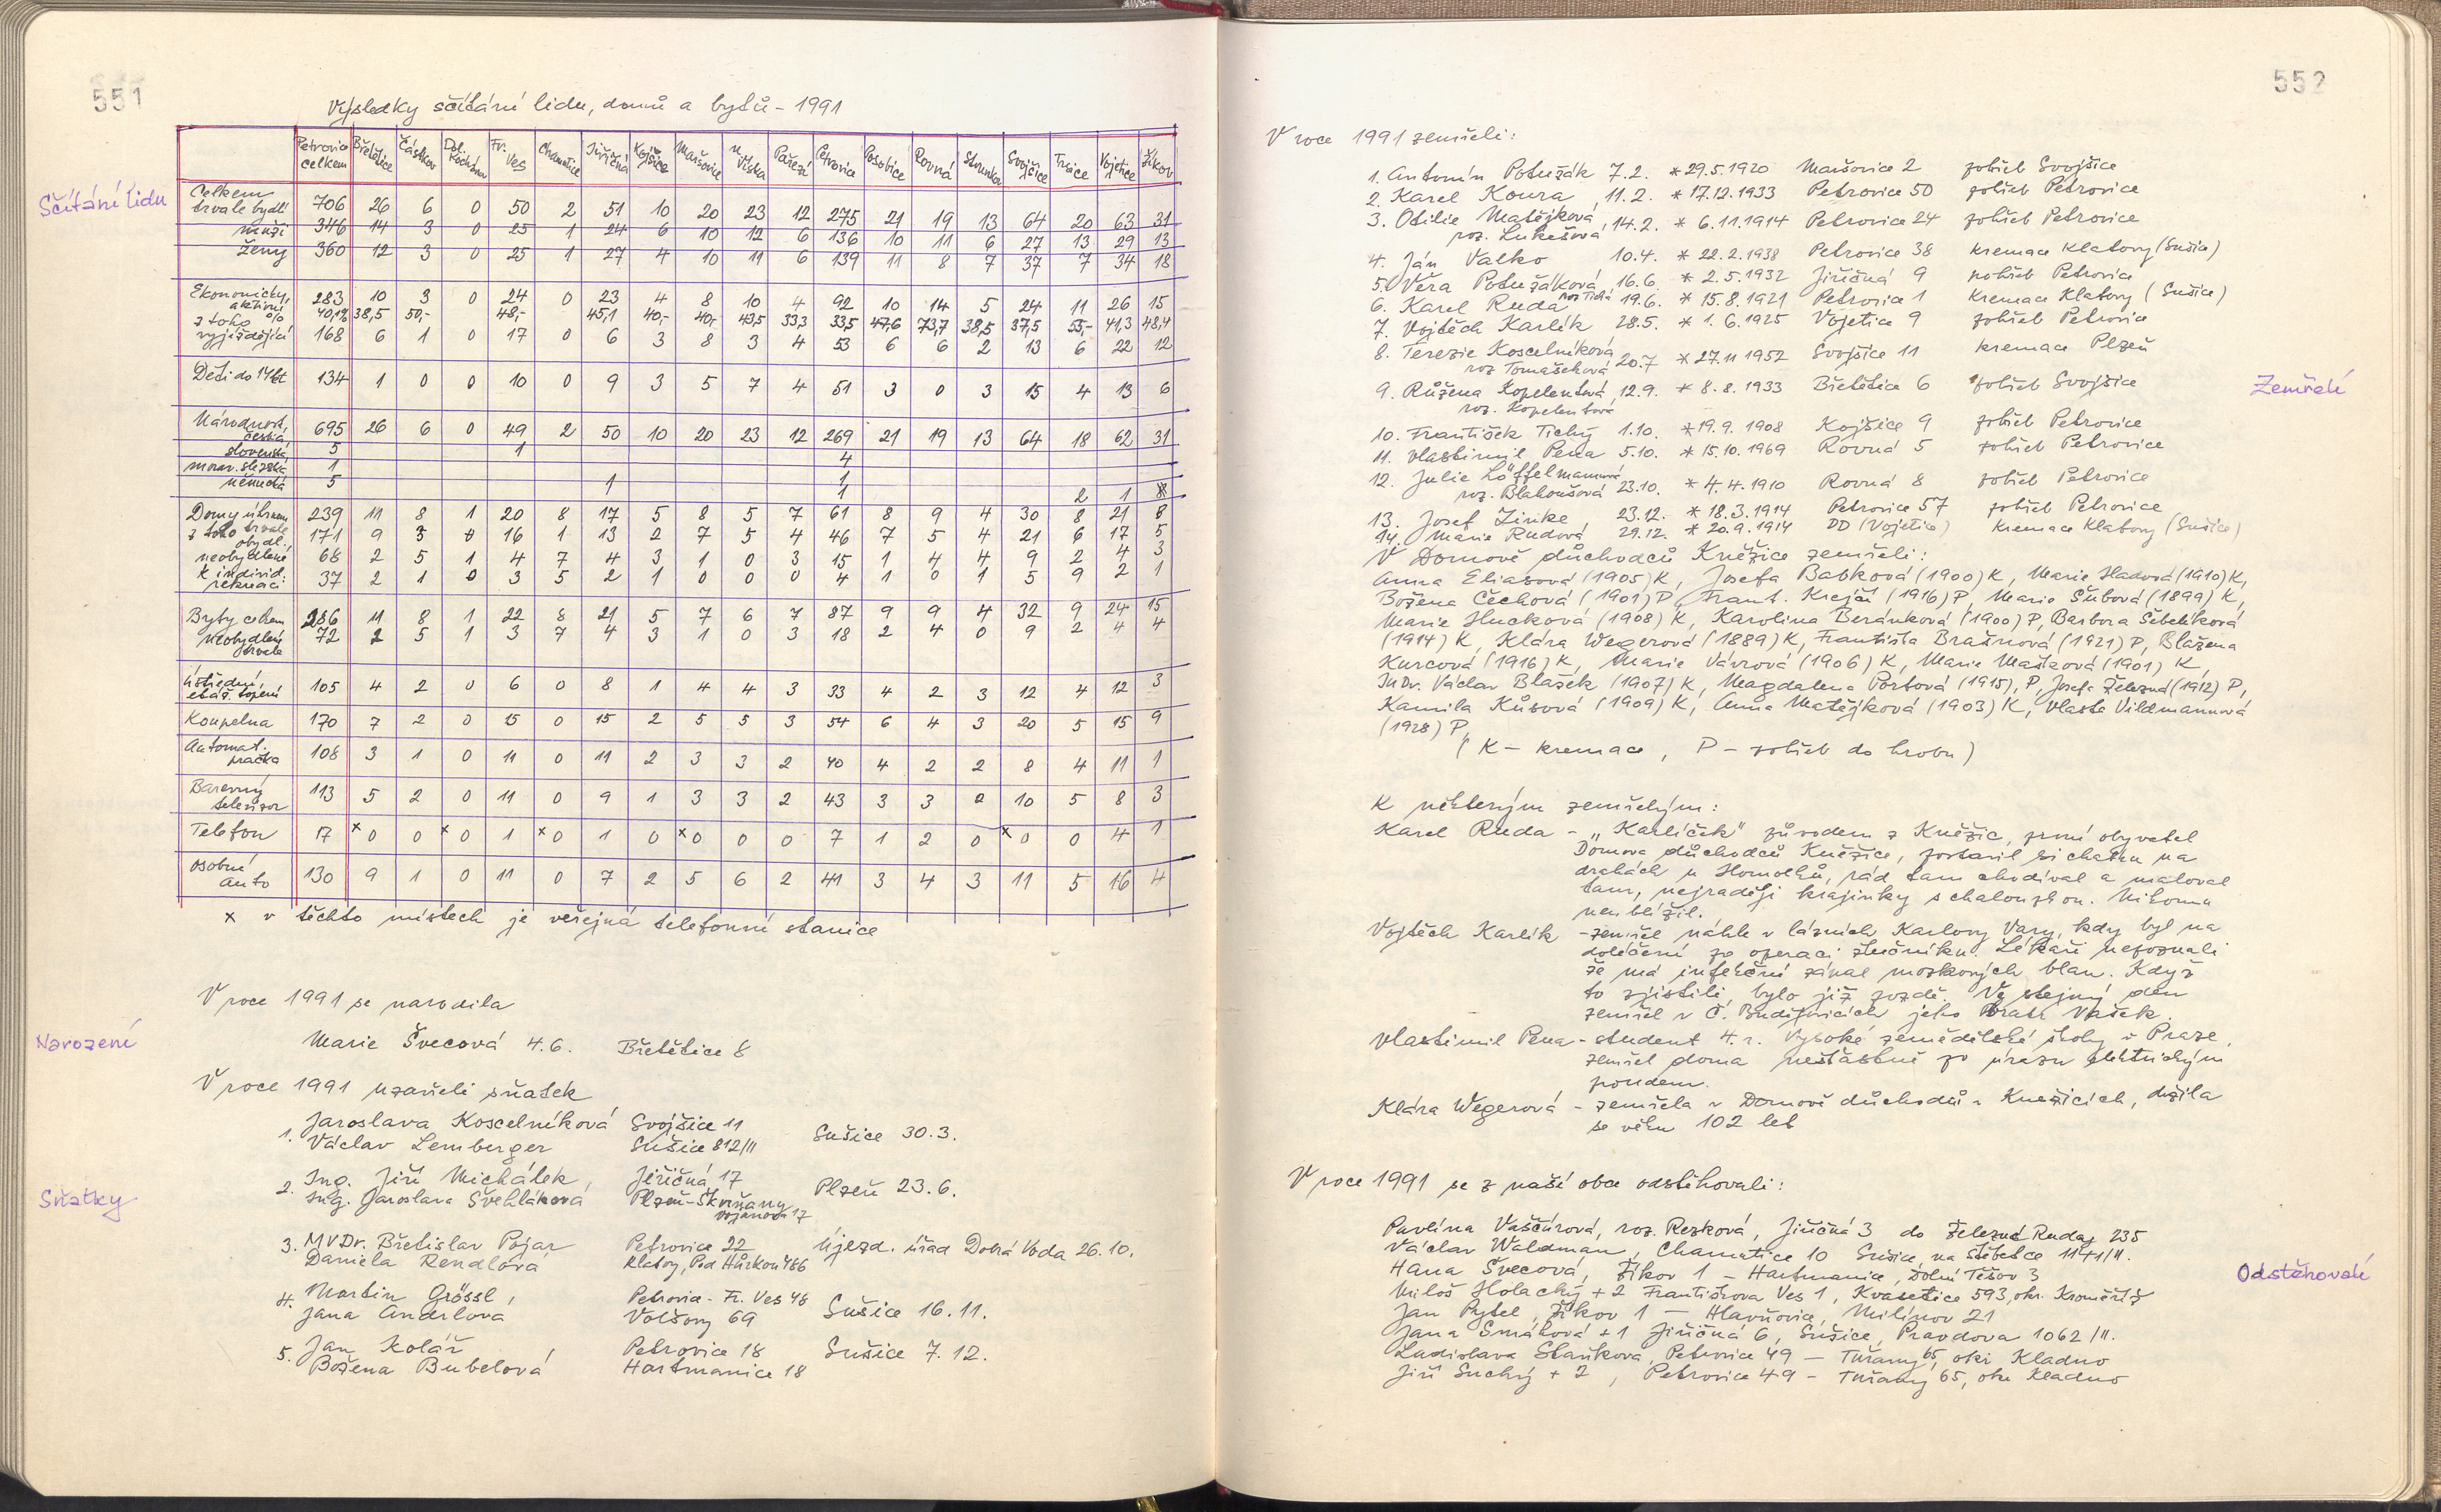 551
Výsledky sčítání lidu, domů a bytů - 1991
Sčítání lidu
Petrovice celkem Břetětice Částkov Dol. Kochánov Fr. Ves Chamutice Jiřičná Kojšice Maršovice M. Víska Pařezí Petrovice Posobice Rovná Strunkov Svojšice Trsice Vojetice Žikov
Celkem trvale bydl. 706 26 6 0 50 2 51 10 20 23 12 275 21 19 13 64 20 63 31
muži 346 14 3 0 25 1 24 6 10 12 6 136 10 11 6 27 13 29 13
ženy 360 12 3 0 25 1 27 4 10 11 6 139 11 8 7 37 7 34 18
Ekonomicky aktivní 283 10 3 0 24 0 23 4 8 10 4 92 10 14 5 24 11 26 15
% 40,1% 38,5 50,- 48,- 45,1 40,- 40,- 43,5 33,3 33,5 47,6 73,7 38,5 37,5 55,- 41,3 48,4
z toho vyjíždějící 168 6 1 0 17 0 6 3 8 3 4 53 6 6 2 13 6 22 12
Děti do 14 let 134 1 0 0 10 0 9 3 5 7 4 51 3 0 3 15 4 13 6
Národnost, česká 695 26 6 0 49 2 50 10 20 23 12 269 21 19 13 64 18 62 31
slovenská 5 1 4
morav. slezská 1 1
německá 5 1 1 2 1
Domy úhrnem 239 11 8 1 20 8 17 5 8 5 7 61 8 9 4 30 8 21 8
z toho trvale obydl. 171 9 3 0 16 1 13 2 7 5 4 46 7 5 4 21 6 17 5
neobydlené 68 2 5 1 4 7 4 3 1 0 3 15 1 4 4 9 2 4 3
k individ. rekreaci 37 2 1 0 3 5 2 1 0 0 0 4 1 0 1 5 9 2 1
Byty celkem 286 11 8 1 22 8 21 5 7 6 7 87 9 9 4 32 9 24 15
neobydlené trvale 72 2 5 1 3 7 4 3 1 0 3 18 2 4 0 9 2 4 4
ústřední, etáž. topení 105 4 2 0 6 0 8 1 4 4 3 33 4 2 3 12 4 12 3
Koupelna 170 7 2 0 15 0 15 2 5 5 3 54 6 4 3 20 5 15 9
Automat. pračka 108 3 1 0 11 0 11 2 3 3 2 40 4 2 2 8 4 11 1
Barevný televizor 113 5 2 0 11 0 9 1 3 3 2 43 3 3 2 10 5 8 3
Telefon 17 x0 0 x0 1 x0 1 0 x0 0 0 7 1 2 0 x0 0 4 1
osobní auto 130 9 1 0 11 0 7 2 5 6 2 41 3 4 3 11 5 16 4
x v těchto místech je veřejná telefonní stanice
V roce 1991 se narodila
Narození
Marie Švecová 4.6. Břetětice 8
V roce 1991 uzavřeli sňatek
Sňatky
1. Jaroslava Koscelníková Svojšice 11
Václav Lemberger Sušice 812/II Sušice 30.3.
2. Ing. Jiří Michálek, Jiřičná 17
Ing. Jaroslava Švehláková Plzeň-Skvrňany Vojanova 17 Plzeň 23.6.
3. MVDr. Břetislav Pojar Petrovice 22 újezd. úřad Dobrá Voda 26.10.
Daniela Rendlová Klatovy, Pod Hůrkou 486
4. Martin Grössl, Petrovice - Fr. Ves 48
Jana Andrlová Volšovy 69 Sušice 16.11.
5. Jan Kolář, Petrovice 18 Sušice 7.12.
Božena Bubelová Hartmanice 18
552
V roce 1991 zemřeli:
1. Antonín Potužák 7.2. *29.5.1920 Maršovice 2 pohřeb Svojšice
2. Karel Koura, 11.2. *17.12.1933 Petrovice 50 pohřeb Petrovice
3. Otilie Matějková roz. Lukešová 14.2. * 6.11.1914 Petrovice 24 pohřeb Petrovice
4. Ján Valko 10.4. * 22.2.1938 Petrovice 38 kremace Klatovy (Sušice)
5. Věra Potužáková roz Tichá 16.6. * 2.5.1932 Jiřičná 9 pohřeb Petrovice
6. Karel Ruda 19.6. * 15.8.1921 Petrovice 1 kremace Klatovy (Sušice)
7. Vojtěch Karlík 28.5. * 1.6.1925 Vojetice 9 pohřeb Petrovice
8. Terezie Koscelníková roz Tomašeková 20.7 *27.11 1952 Svojšice 11 kremace Plzeň
Zemřelí
9. Růžena Kopelentová, 12.9. * 8.8.1933 Břetětice 6 pohřeb Svojšice
roz. Kopelentová
10. František Tichý 1.10. *19.9.1908 Kojšice 9 pohřeb Petrovice
11. Vlastimil Pena 5.10. * 15.10.1969 Rovná 5 pohřeb Petrovice
12. Julie Löffelmannová
roz. Blahoušová 23.10. * 4.4.1910 Rovná 8 pohřeb Petrovice
13. Josef Zinke 23.12. * 18.3.1914 Petrovice 57 pohřeb Petrovice
14. Marie Rudová 29.12. * 20.9.1914 DD (Vojetice) kremace Klatovy (Sušice)
V Domově důchodců Kněžice zemřeli:
Anna Eliasová (1905) K, Josefa Babková (1900) K, Marie Hladová (1910) K,
Božena Čechová (1901) P, Frant. Krejčí (1916) P, Marie Šubová (1899) K,
Marie Hucková (1908) K, Karolina Beránková (1900) P, Barbora Šebelíková
(1914) K, Klára Wegerová (1889) K, Františka Brašnová (1921) P, Blažena
Kurcová (1916) K, Marie Vávrová (1906) K, Marie Mašková (1901) K,
JuDr. Václav Blažek (1907) K, Magdalena Portová (1915), P, Josefa Železná (1912) P,
Kamila Kůsová (1909) K, Anna Matějková (1903) K, Vlasta Vildmannová
(1928) P,
(K - kremace, P - pohřeb do hrobu)
K některým zemřelým:
Karel Ruda - „Karlíček" původem z Kněžic, první obyvatel
Domova důchodců Kněžice, postavil si chatku na
drahách u Homolků, rád tam chodíval a maloval
tam, nejraději krajinky s chaloupkou. Nikomu
neublížil.
Vojtěch Karlík - zemřel náhle v lázních Karlovy Vary, kdy byl na
doléčení po operaci žlučníku. Lékaři nepoznali
že má infekční zánět mozkových blan. Když
to zjistili, bylo již pozdě. Ve stejný den
zemřel v Č. Budějovicích jeho bratr Vašek.
Vlastimil Pena - student 4. r. Vysoké zemědělské školy v Praze,
zemřel doma nešťastně po úrazu elektrickým
proudem.
Klára Wegerová - zemřela v Domově důchodců v Kněžicích, dožila
se věku 102 let
V roce 1991 se z naší obce odstěhovali:
Pavlína Vaščúrová, roz. Rezková, Jiřičná 3 do Železné Rudy 235
Václav Waldman, Chamutice 10 Sušice, na Stěbelce 1171/II.
Odstěhovalí
Hana Švecová, Žikov 1 - Hartmanice, Dolní Těšov 3
Miloš Holacký + 2 Františkova Ves 1, Kvasetice 593, okr. Kroměříž
Jan Pytel, Žikov 1 - Hlavňovice, Milínov 21
Jana Smáhová + 1 Jiřičná 6, Sušice, Pravdova 1062/II.
Ladislava Staňková, Petrovice 49 - Tuřany 65, okr Kladno
Jiří Suchý + 2, Petrovice 49 - Tuřany 65, okr Kladno